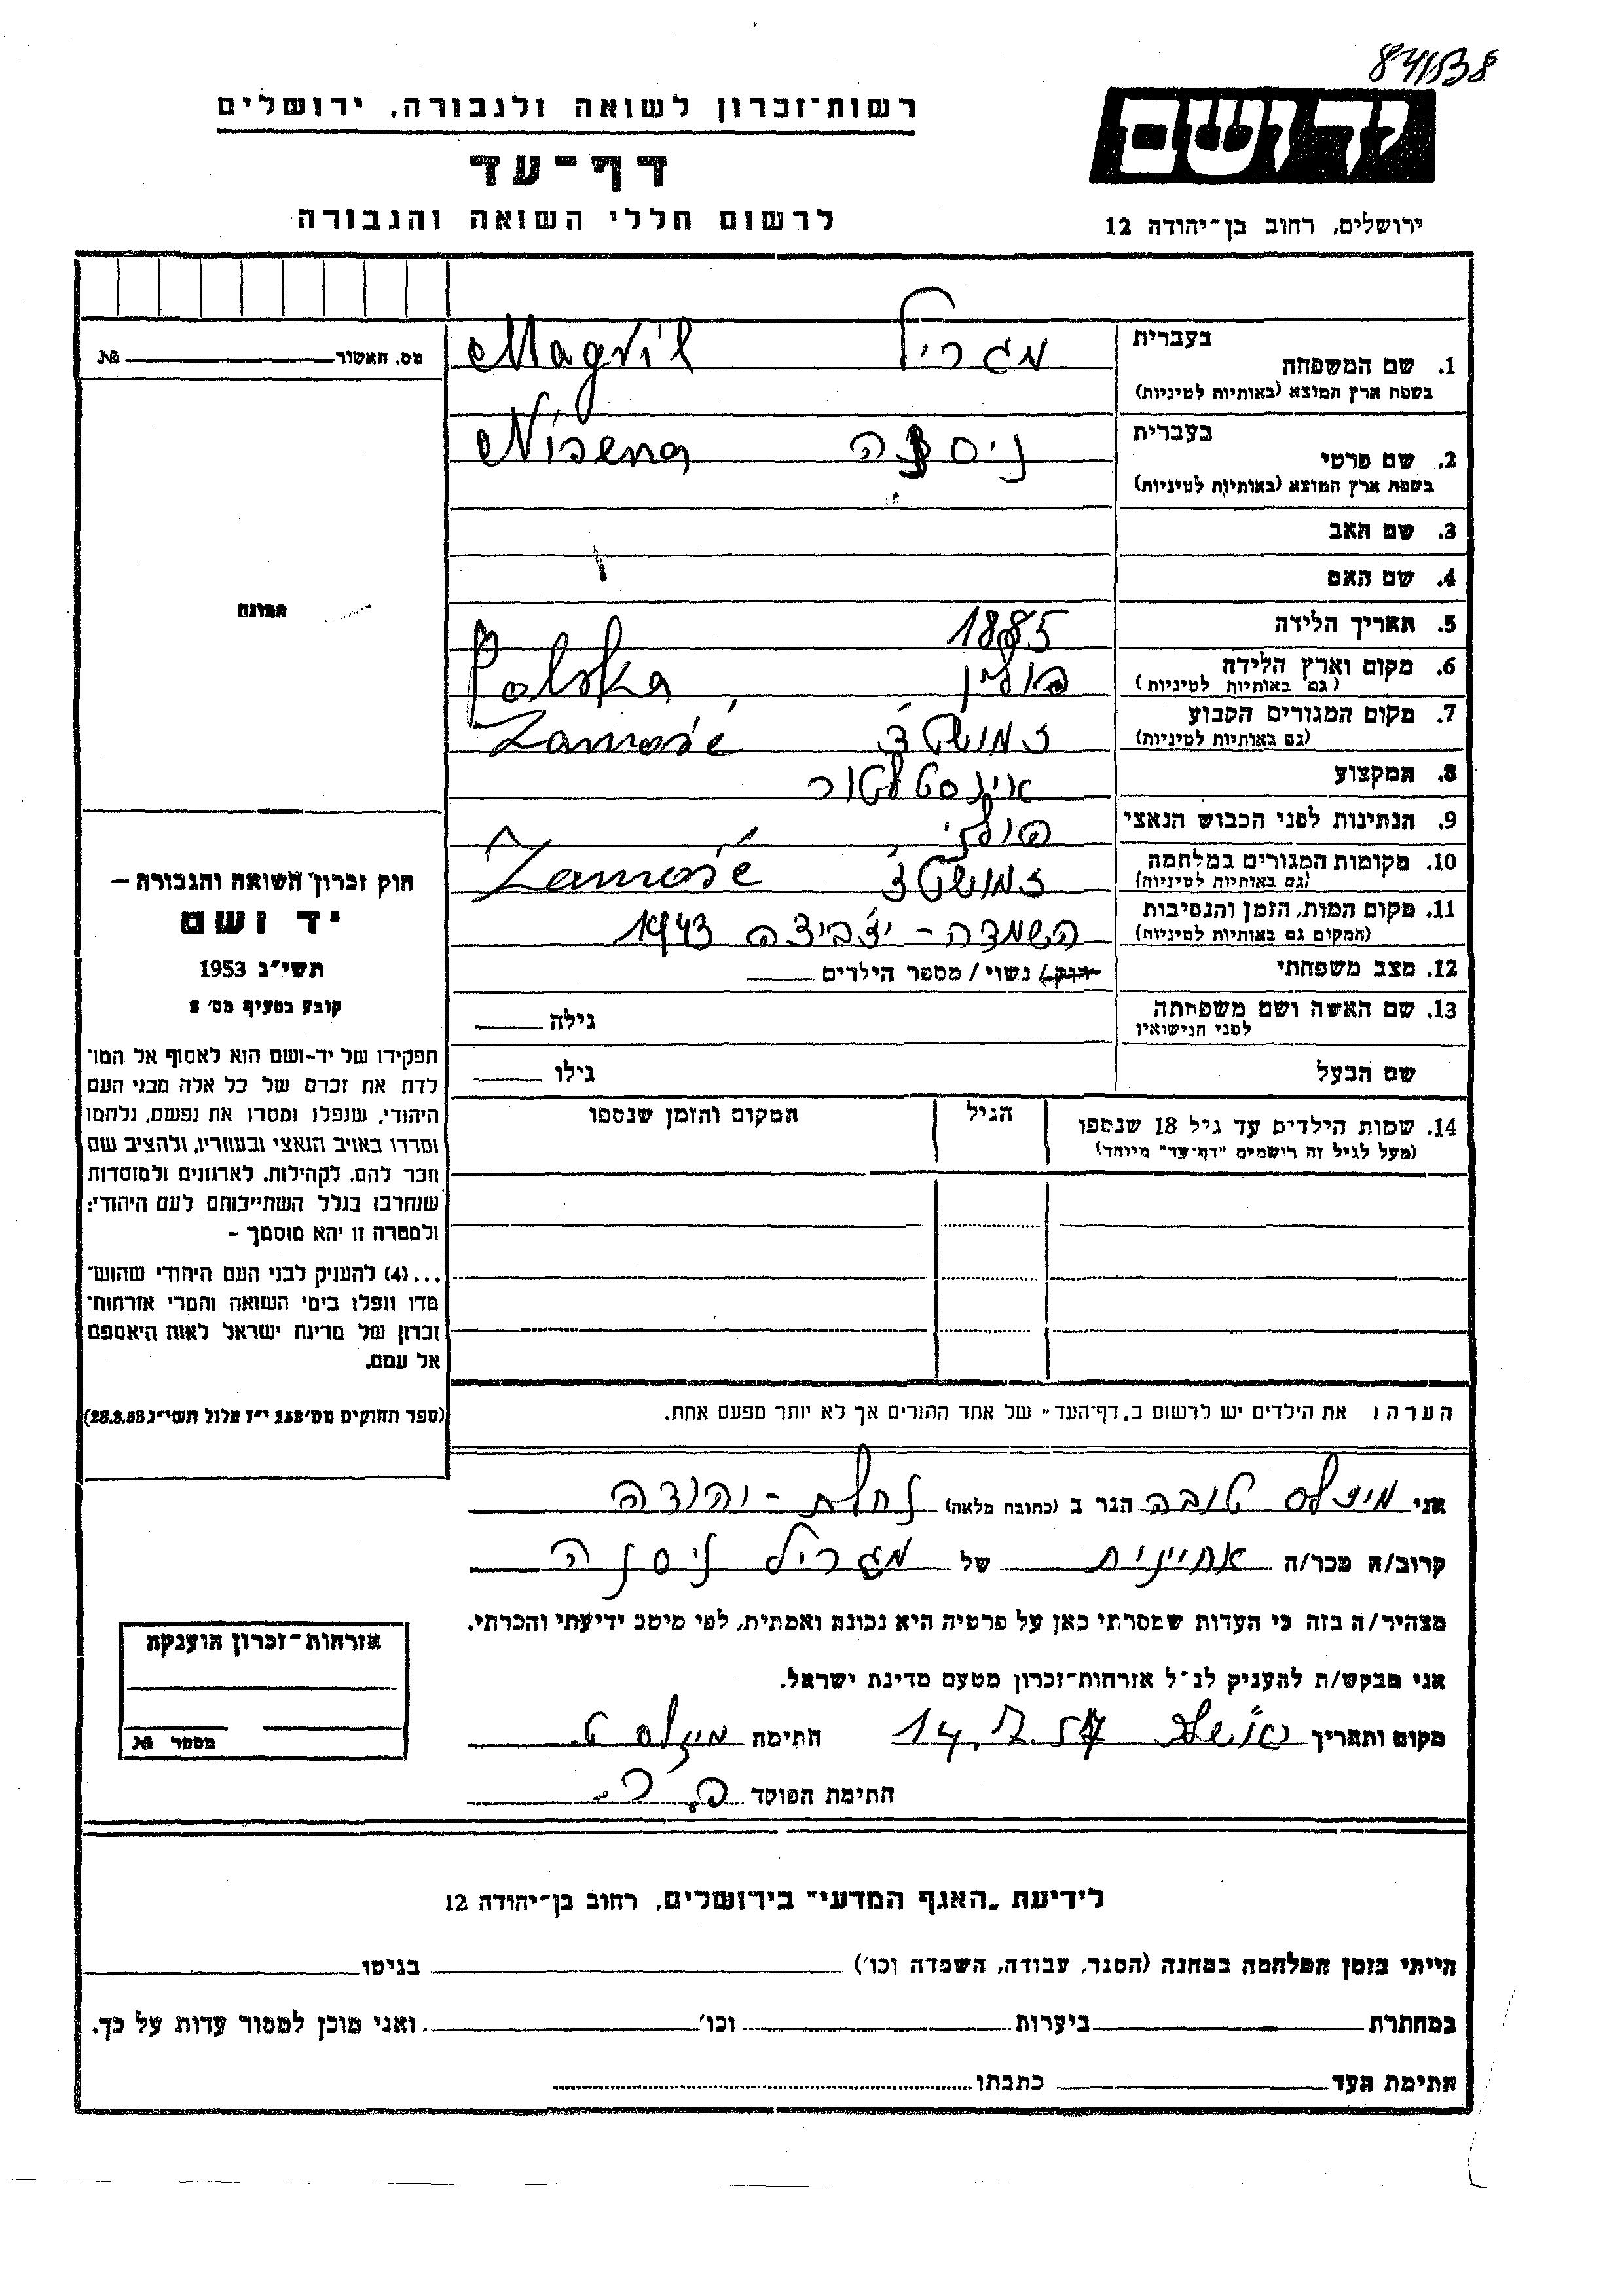 841538
רשות־זכרון לשואה ולגבורה, ירושלים
יד ושם
דף־עד
לרשום חללי השואה והגבורה
ירושלים, רחוב בן־יהודה 12
מס. האשור № 
1. שם המשפחה בעברית מגריל Magril
בשפת ארץ המוצא (באותיות לטיניות)
2. שם פרטי בעברית ניסנה Nisena
בשפת ארץ המוצא (באותיות לטיניות)
3. שם האב
4. שם האם
תמונה
5. תאריך הלידה 1885
6. מקום וארץ הלידה פולין, Polska
(גם באותיות לטיניות)
7. מקום המגורים הקבוע זמושטץ' Zamość
(גם באותיות לטיניות)
8. המקצוע אינסטלטור
9. הנתינות לפני הכבוש הנאצי פולני
10. מקומות המגורים במלחמה זמושטץ' Zamość
(גם באותיות לטיניות)
11. מקום המות, הזמן והנסיבות השמדה - יצביצה 1943
(המקום גם באותיות לטיניות)
12. מצב משפחתי רווק/ נשוי / מספר הילדים
13. שם האשה ושם משפחתה גילה
לפני הנישואין
שם הבעל גילו
14. שמות הילדים עד גיל 18 שנספו הגיל המקום והזמן שנספו
(מעל לגיל זה רישמים "דף־עד" מיוחד)
חוק זכרון השואה והגבורה –
יד ושם
תשי"ג 1953
קובע בסעיף מס' 2
תפקידו של יד-ושם הוא לאסוף אל המו־
לדת את זכרם של כל אלה מבני העם
היהודי, שנפלו ומסרו את נפשם, נלחמו
ומרדו באויב הנאצי ובעוזריו, ולהציב שם
וזכר להם, לקהילות, לארגונים ולמוסדות
שנחרבו בגלל השתייכותם לעם היהודי;
ולמטרה זו יהא מוסמך –
...(4) להעניק לבני העם היהודי שהוש־
מדו ונפלו בימי השואה והמרי אזרחות־
זכרון של מדינת ישראל לאות היאספם
אל עמם.
(ספר החוקים מס' 132 י"ז אלול תשי"ג 28.8.53)
הערה: את הילדים יש לרשום ב„דף־העד" של אחד ההורים אך לא יותר מפעם אחת.
אני מיצלס טובה הגר ב (כתובת מלאה) נחלת - יהודה
קרוב/ה מכר/ה אחיינית של מגריל ניסנה
מצהיר/ה בזה כי העדות שמסרתי כאן על פרטיה היא נכונה ואמתית, לפי מיטב ידיעתי והכרתי.
אני מבקש/ת להעניק לנ"ל אזרחות־זכרון מטעם מדינת ישראל.
מקום ותאריך 14.7.57 חתימה ט.
חתימת הפוקד
אזרחות־זכרון הוענקה
מספר №
לידיעת „האגף המדעי" בירושלים, רחוב בן־יהודה 12
הייתי בזמן המלחמה במחנה (הסגר, עבודה, השמדה וכו') בגיטו
במחתרת ביערות וכו' ואני מוכן למסור עדות על כך.
חתימת העד כתבתו